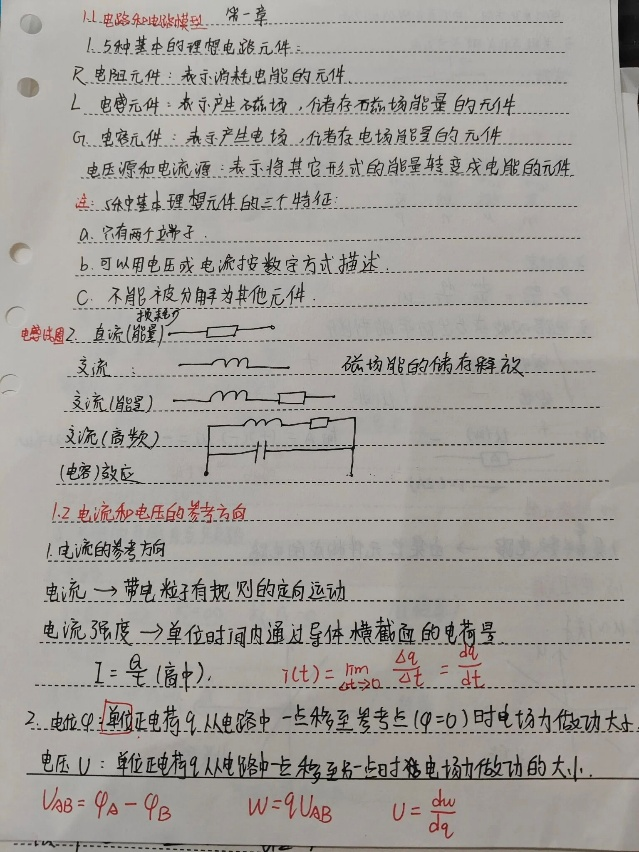 第一章
1.1 电路和电路模型
1. 5种基本的理想电路元件:
R 电阻元件: 表示消耗电能的元件
L 电感元件: 表示产生磁场,储存磁场能量的元件
G 电容元件: 表示产生电场,储存电场能量的元件
电压源和电流源: 表示将其它形式的能量转变成电能的元件
注: 5种基本理想元件的三个特征:
a. 只有两个端子.
b. 可以用电压或电流按数学方式描述.
C. 不能被分解为其他元件.
损耗
2. 直流(能量)
交流: 磁场能的储存释放
交流(能量)
交流(高频)
(电容)效应
1.2 电流和电压的参考方向
1. 电流的参考方向
电流 → 带电粒子有规则的定向运动
电流强度 → 单位时间内通过导体横截面的电荷量
I = Q/t (高中). i(t) = lim Δt→0 Δq/Δt = dq/dt
2. 电位φ: 单位正电荷q从电路中一点移至参考点(φ=0)时电场力做功大小.
电压U: 单位正电荷q从电路中一点移至另一点时电场力做功的大小.
UAB = φA - φB W = qUAB U = dw/dq